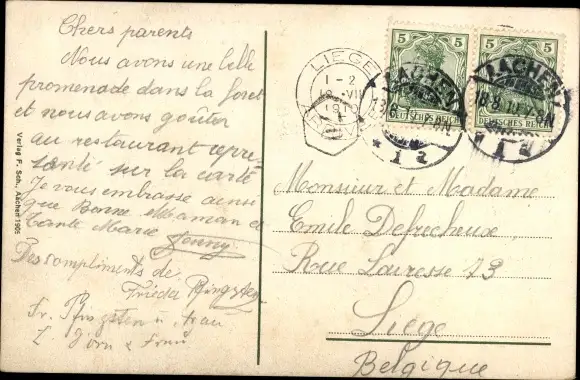 Chers parents
Nous avons une belle
promenade dans la foret
et nous avons goûter
au restaurant repré-
santé sur la carte
Je vous embrasse ainsi
que Bonne Maman et
Tante Marie Jenny
Des compliments de
Frieda Pingsten
Fr. Pingsten u. Frau
Z. Horn u Frau
Verlag F. Sch., Aachen 1905
LIEGE
1-2
VII
1910
5 5
5 5
DEUTSCHES REICH
DEUTSCHES REICH
AACHEN
* 1 a
AACHEN
18.8.
* 1 d
Monsieur et Madame
Emile Defrecheux
Rue Lairesse 73
Liége
Belgique